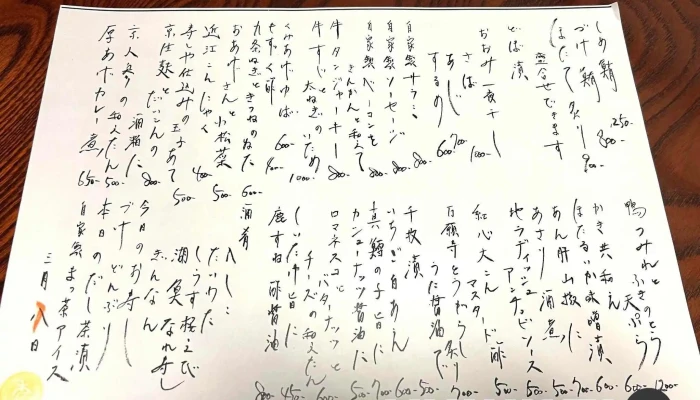 しめ鯖 250-
づけ鮪 800-
ほたて炙り 900-
盛合せできます
どぼ漬
おおみ一夜干し 1000-
さば
あじ 700-
するめ 600-
自家製サラミ 800-
自家製ソーセージ 800-
自家製ベーコンと
きんかんと和えて 800-
牛タンジャーキー 800-
牛すじと
太ねぎのいため 1000-
くみあげゆば 600-
もずく酢
九条ねぎときつねのぬた 600-
おあげさんと小松菜 500-
近江こんにゃく 400-
寿しや仕込みの玉子あて 500-
京生麩とだいこんの
酒粕に 800-
京人参の和えたん 500-
厚あげカレー煮 650-
鴨つみれと
ふきのとう
天ぷら 1200-
かき共和え 600-
ほたるいか味噌漬 600-
あん肝山椒に 700-
あさり酒煮 500-
地ラディッシュ
アンチョビソース 500-
紅心大こん
マスタード酢 500-
万願寺とうがらし炙り
うに醤油で 700-
千枚漬 500-
いちご白あえ 600-
真鱈の子旨に 700-
カシューナッツ醤油に 500-
ロマネスコと
バターナッツと
チーズの和えたん 600-
しいたけ旨に 450-
鹿すね酢醤油 800-
酒肴
たいわた
しらす
酒
ぎんなん
今日のお寿し
づけどんぶり
本日のだし茶漬
自家製まっ茶アイス
三月八日